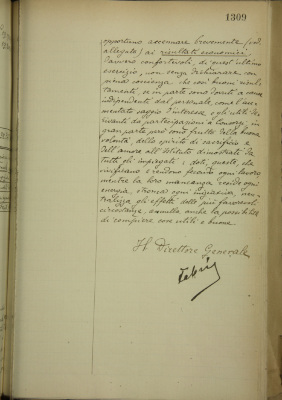 1309
opportuno accennare brevemente (ved.
allegato) ai risultati economici
davvero confortevoli, di quest'ultimo
esercizio, non senza dichiarare con
piena coscienza che così buoni risul-
tamenti, se in parte sono dovuti a cause
indipendenti dal personale, come l'au-
mentato saggio d'interesse e gli utili de-
rivanti da partecipazioni a Consorzi, in
gran parte però sono frutto della buona
volontà, dello spirito di sacrificio e
dell'amore all'Istituto dimostrati da
tutti gli impiegati: doti, queste, che
vivificano e rendono fecondo ogni lavoro
mentre la loro mancanza rende ogni
energia, stronca ogni iniziativa, neu-
tralizza gli effetti delle più favorevoli
circostanze, annulla anche la possibilità
di compiere cose utili e buone.
Il Direttore Generale